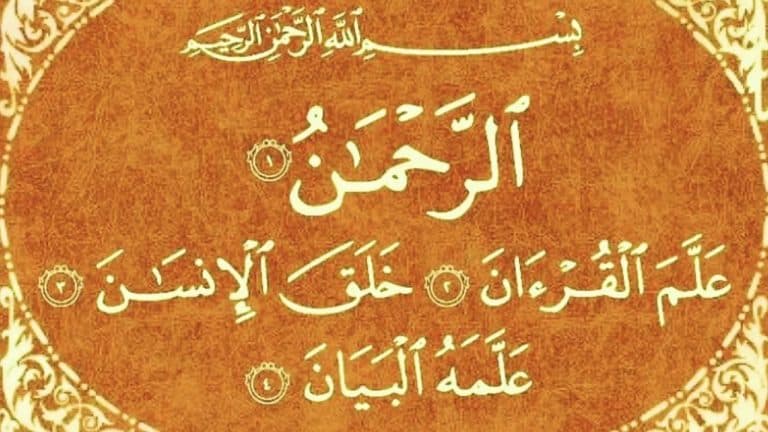 بِسْمِ ٱللَّهِ ٱلرَّحْمَٰنِ ٱلرَّحِيمِ
ٱلرَّحْمَٰنُ ١
عَلَّمَ ٱلْقُرْءَانَ ٢ خَلَقَ ٱلْإِنسَٰنَ ٣
عَلَّمَهُ ٱلْبَيَانَ ٤